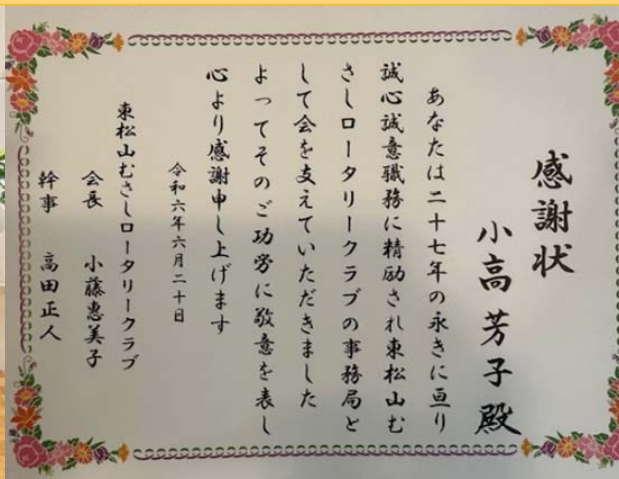 感謝状
小高芳子殿
あなたは二十七年の永きに亘り
誠心誠意職務に精励され東松山む
さしロータリークラブの事務局と
して会を支えていただきました
よってそのご功労に敬意を表し
心より感謝申し上げます
令和六年六月二十日
東松山むさしロータリークラブ
会長 小藤惠美子
幹事 高田正人